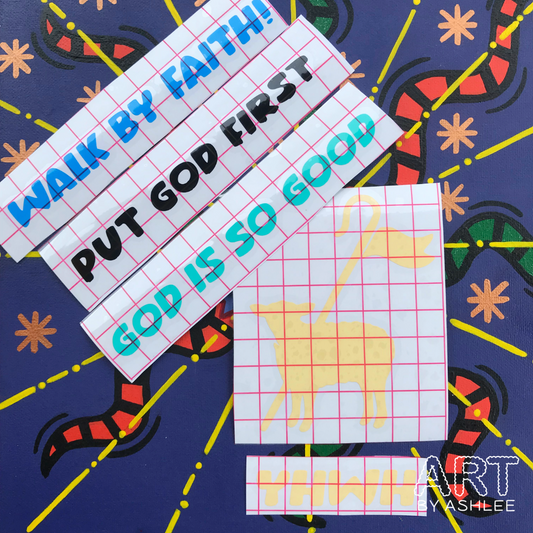 WALK BY FAITH!
PUT GOD FIRST
GOD IS SO GOOD
YHWH
ART
BY ASHLEE